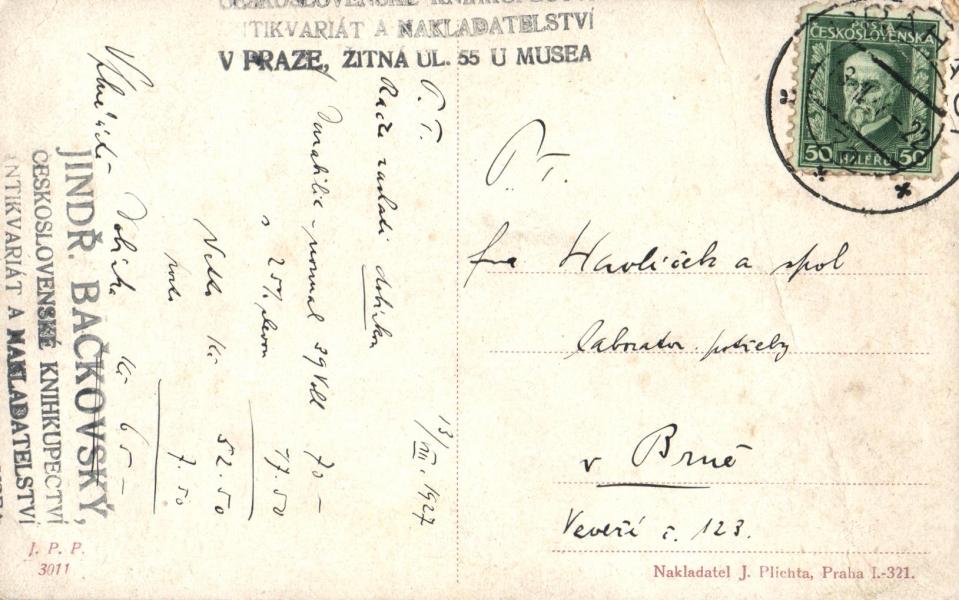 ČESKOSLOVENSKÉ KNIHKUPECTVÍ
ANTIKVARIÁT A NAKLADATELSTVÍ
V PRAZE, ŽITNÁ UL. 55 U MUSEA
POŠTA
ČESKOSLOVENSKÁ
50 HALÉRŮ 50
P. T.
Račte zaslati dobírkou
13/VIII. 1927
normal 39 Voll 70 –
s 25% slevou 17.50
Netto Kč 52.50
porto 7.50
Kč 65 –
JINDŘ. BAČKOVSKÝ,
ČESKOSLOVENSKÉ KNIHKUPECTVÍ
ANTIKVARIÁT A NAKLADATELSTVÍ
P. T.
fra Havlíček a spol
laborator. potřeby
v Brně
Veveří č. 123.
J. P. P.
3011
Nakladatel J. Plichta, Praha I.-321.